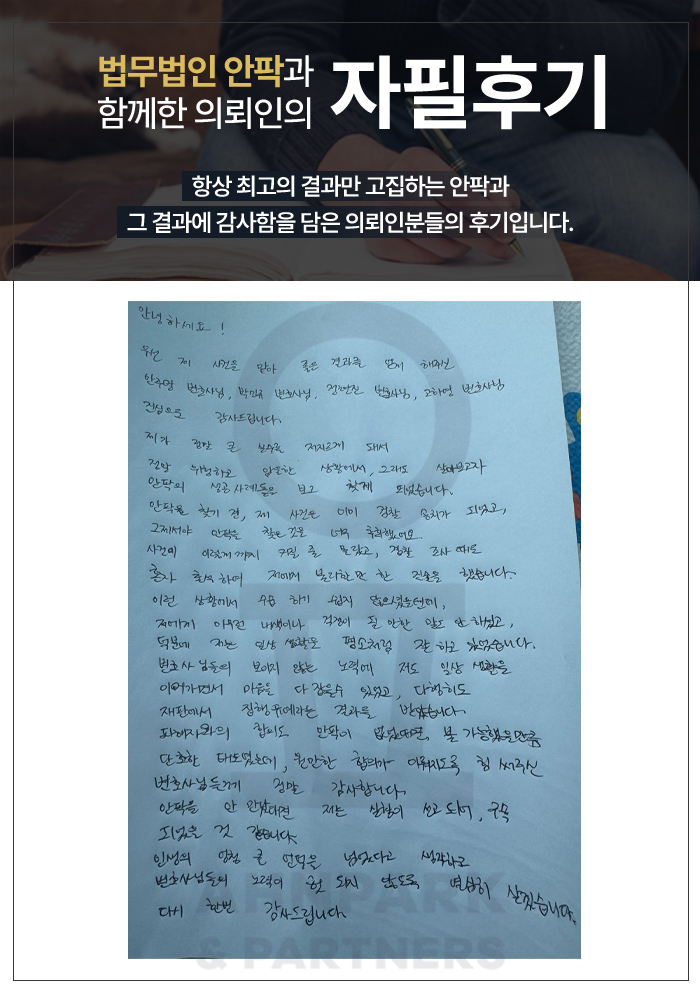 법무법인 안팍과
함께한 의뢰인의
자필후기
항상 최고의 결과만 고집하는 안팍과
그 결과에 감사함을 담은 의뢰인분들의 후기입니다.
안녕하세요!
우선 제 사건을 맡아 좋은 결과를 얻게 해주신
안주영 변호사님, 박민규 변호사님, 변호사님, 고하영 변호사님
진심으로 감사드립니다.
제가 정말 큰 실수를 저지르게 돼서
정말 위험하고 암울한 상황에서, 그래도 살아보고자
안팍의 성공사례들을 보고 찾게 되었습니다.
안팍을 찾기 전, 제 사건은 이미 검찰 송치가 되었고,
그제서야 안팍을 찾은 것을 너무 후회했어요.
사건이 이렇게까지 커질 줄 몰랐고, 경찰 조사 때도
혼자 출석하여 저에게 불리한 만한 진술을 했습니다.
이런 상황에서 수습하기 쉽지 않으셨을텐데,
저에게 아무런 내색이나 걱정이 될 만한 말도 안하셨고,
덕분에 저는 일상생활을 평소처럼 잘 하고 있었습니다.
변호사님들의 보이지 않는 노력에 저도 일상생활을
이어가면서 마음을 다잡을수 있었고, 다행히도
재판에서 집행유예라는 결과를 받았습니다.
피해자와의 합의도 안팍이 없었다면, 불가능했을만큼
단호한 태도였는데, 원만한 합의가 이뤄지도록 힘 써주신
변호사님들께 정말 감사합니다.
안팍을 안 만났다면 저는 실형이 선고 되어, 구속
되었을 것 같습니다.
인생의 엄청 큰 언덕을 넘었다고 생각하고
변호사님들의 노력이 헛 되지 않도록 열심히 살겠습니다.
다시 한번 감사드립니다.
AHN PARK
& PARTNERS